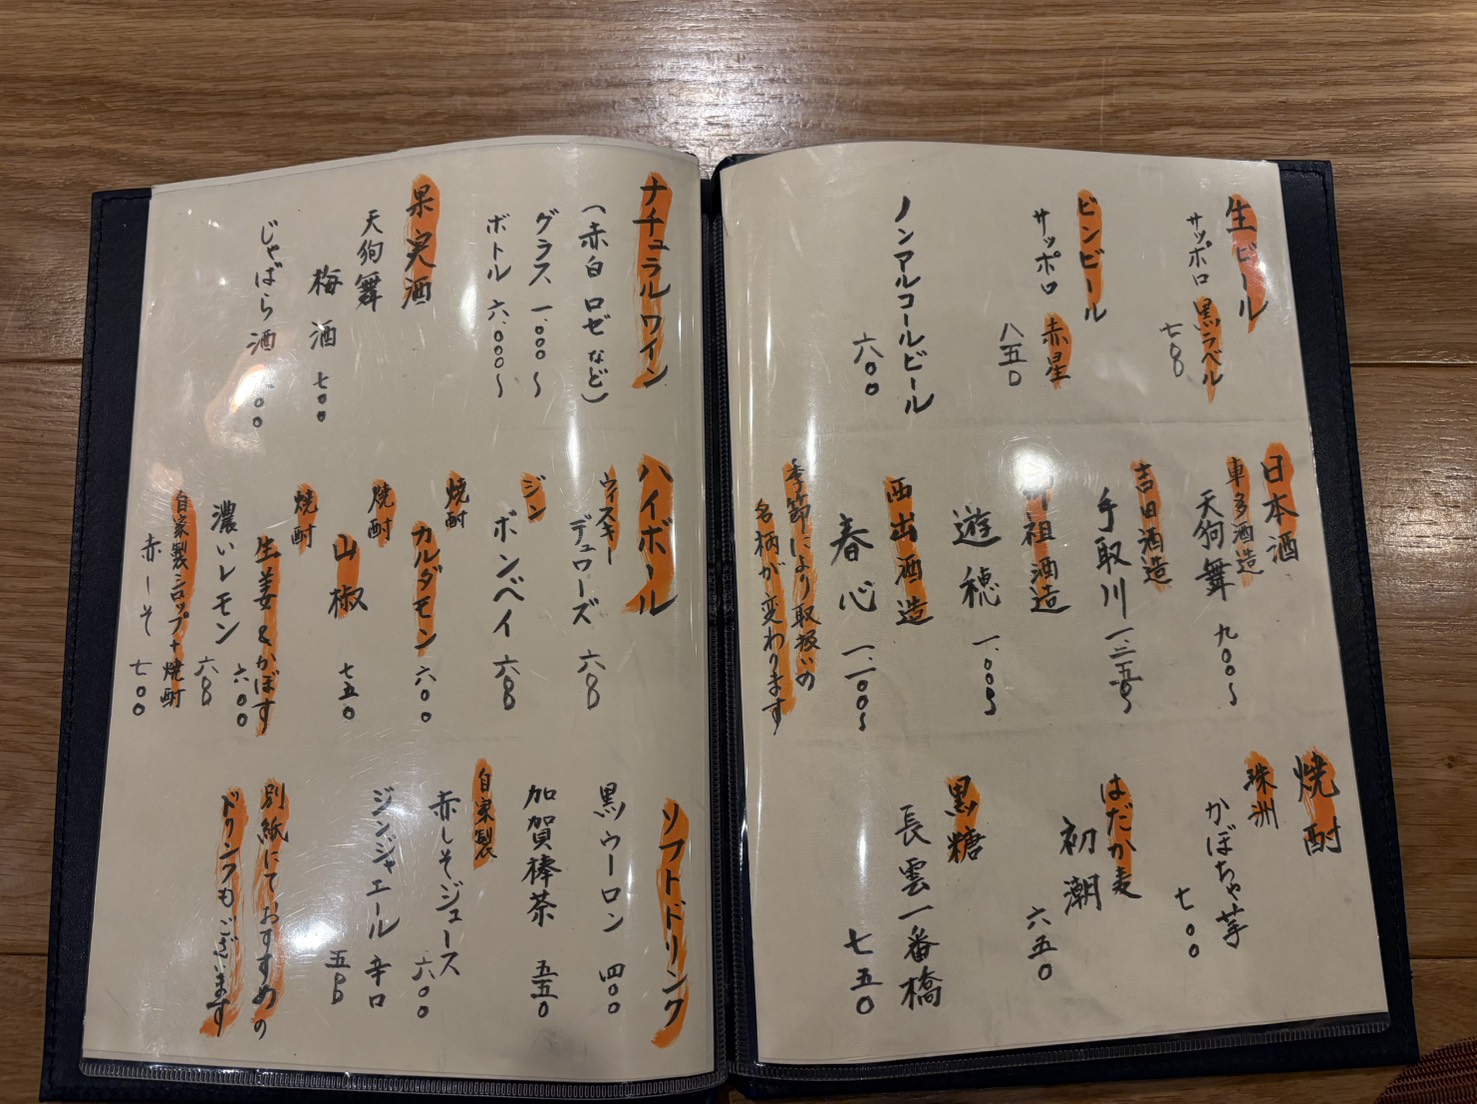 生ビール
サッポロ 黒ラベル
七〇〇
ビンビール
サッポロ 赤星
八五〇
ノンアルコールビール
六〇〇
日本酒
車多酒造
天狗舞 九〇〇〜
吉田酒造
手取川 一、三五〇〜
祖酒造
遊穂 一、〇〇〇〜
西出酒造
春心 一、一〇〇〜
季節により取扱いの
名柄が変わります
焼酎
珠洲
かぼちゃ芋
七〇〇
はだか麦
初潮
六五〇
黒糖
長雲一番橋
七五〇
ナチュラルワイン
（赤白ロゼなど）
グラス 一、〇〇〇〜
ボトル 六、〇〇〇〜
果実酒
天狗舞
梅酒 七〇〇
じゃばら酒 〇〇
ハイボール
ウィスキー
デュワーズ 六〇〇
ジン
ボンベイ 六〇〇
焼酎
カルダモン 六〇〇
焼酎
山椒 七五〇
焼酎
生姜&かぼす
六〇〇
濃いレモン 六〇〇
自家製シロップ+焼酎
赤しそ 七〇〇
ソフトドリンク
黒ウーロン 四〇〇
加賀棒茶 五五〇
自家製
赤しそジュース
六〇〇
ジンジャエール 辛口
五五〇
別紙にておすすめの
ドリンクもございます